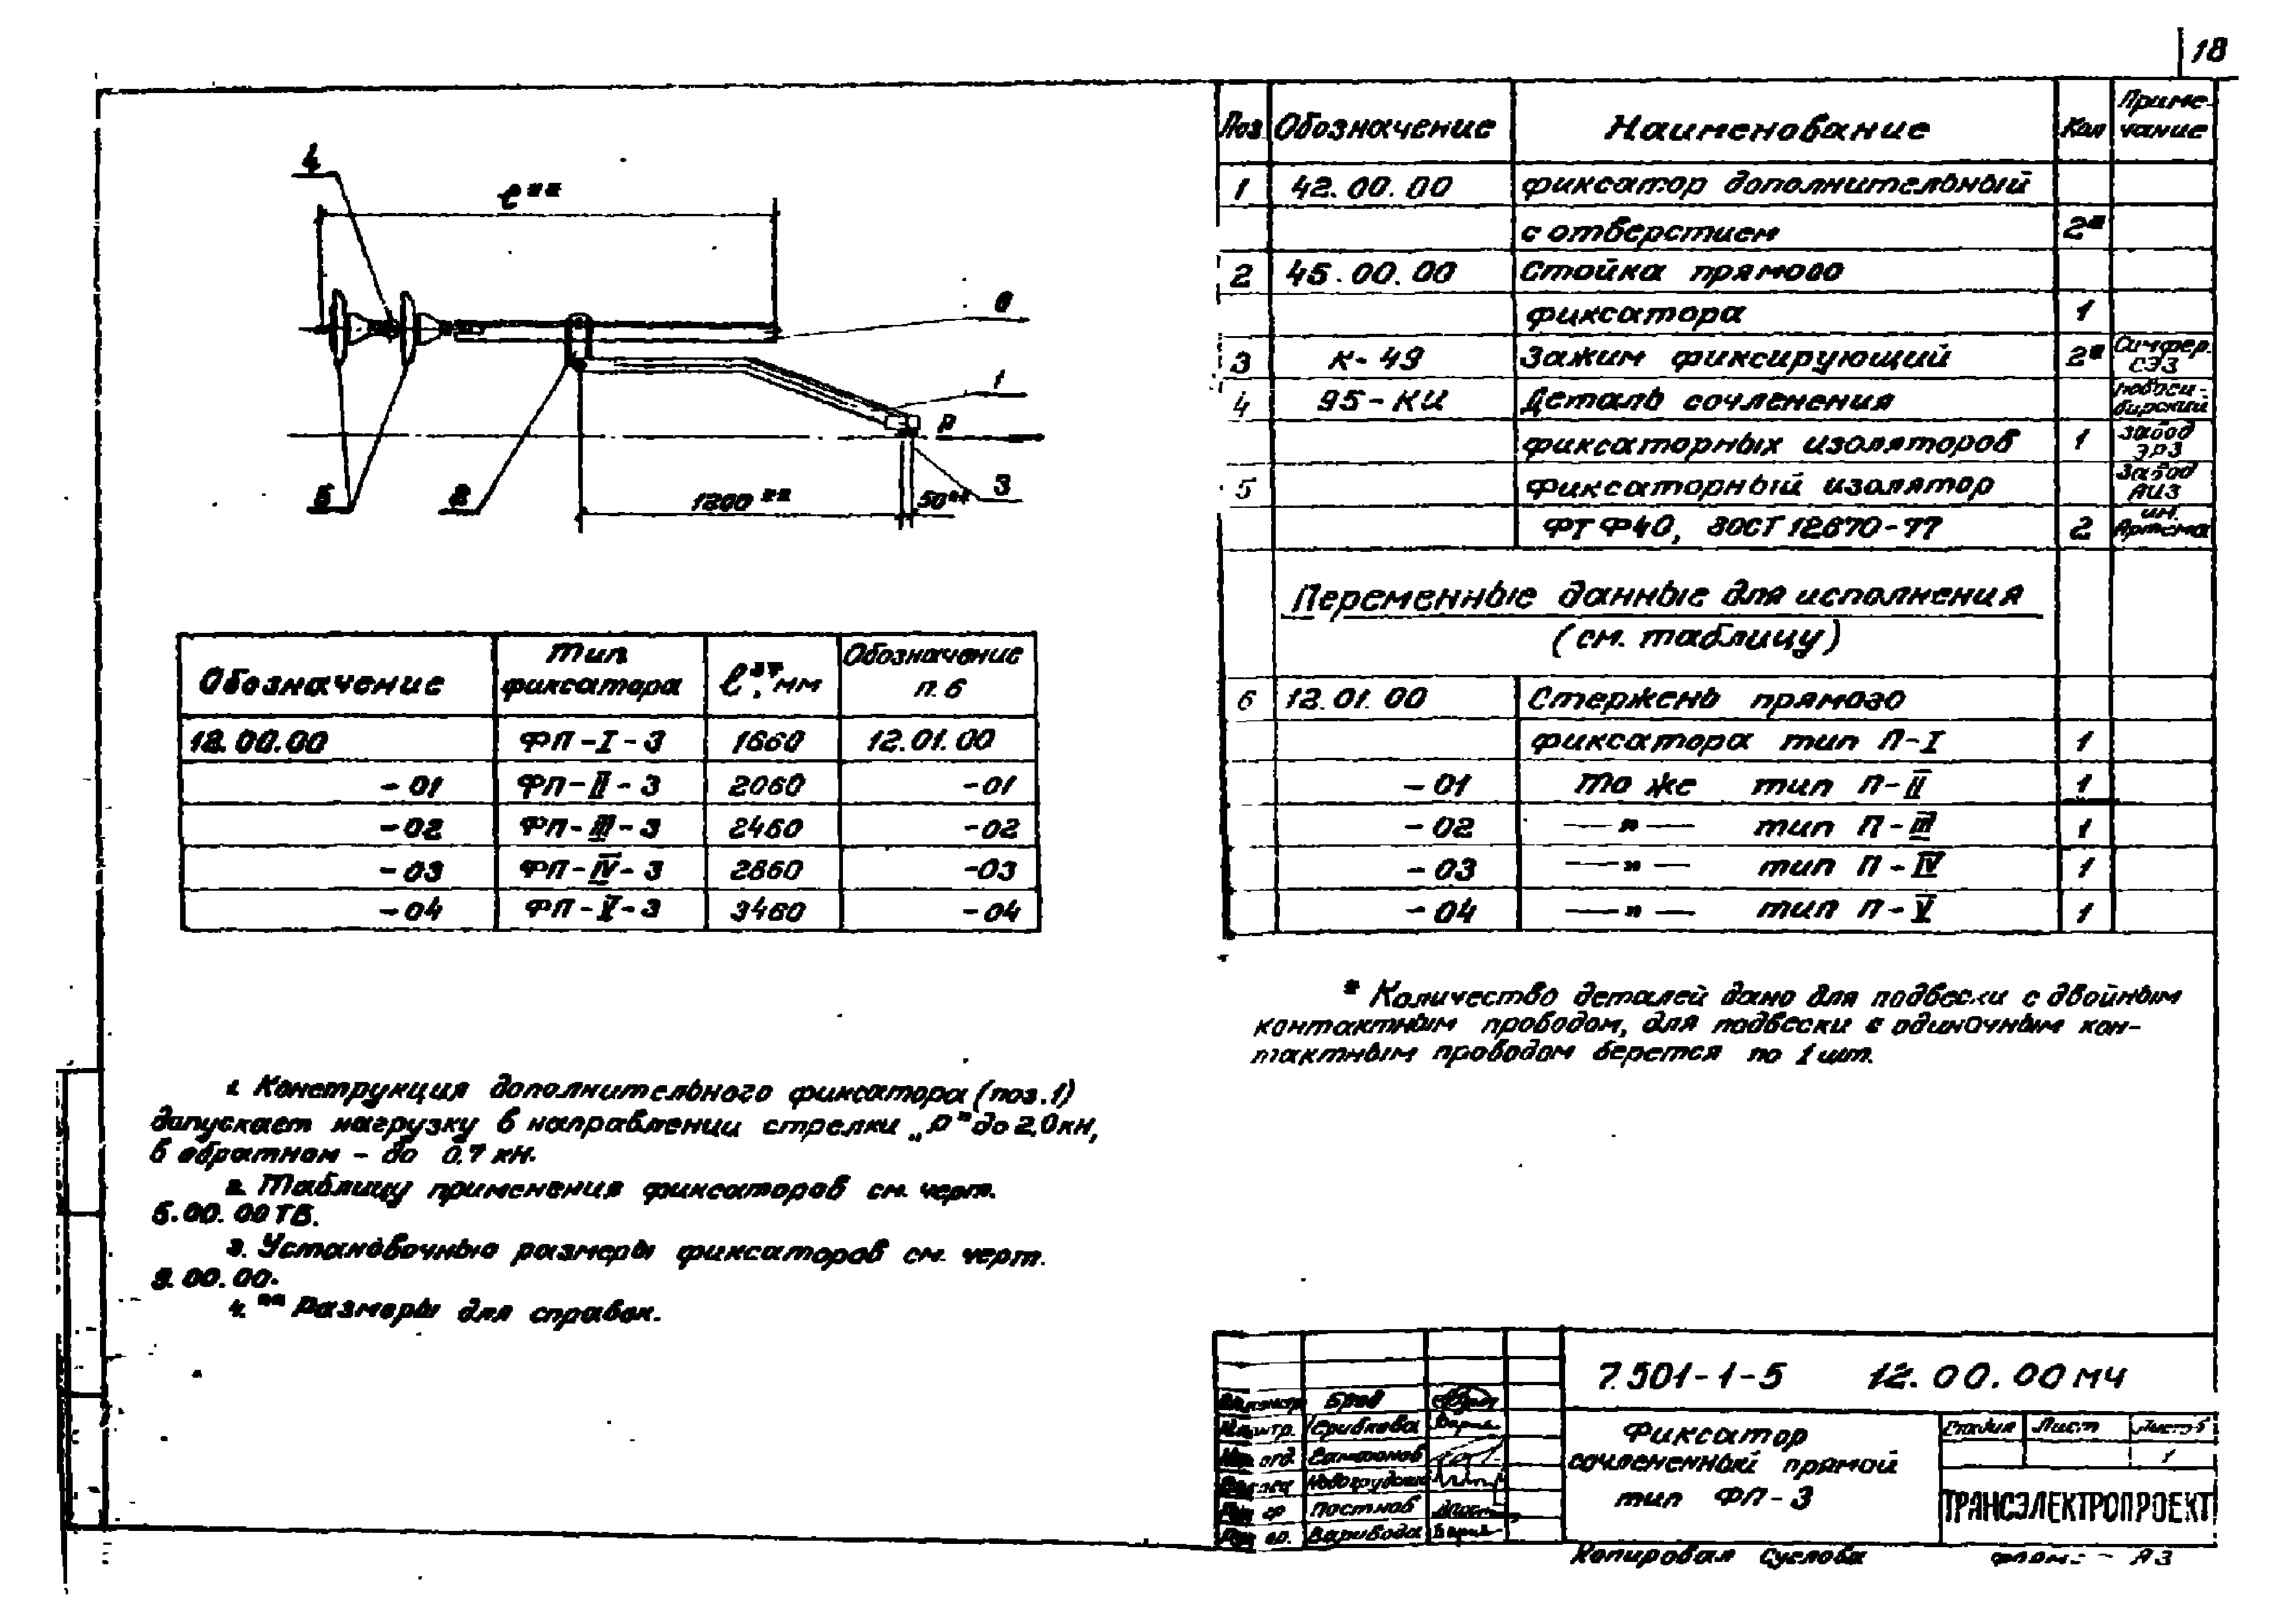 18
4
ℓ**
6
1
P
3
5
2
1200**
50**
Обозначение | Тип фиксатора | ℓ,** мм | Обозначение п.6
12.00.00 | ФП-I-3 | 1660 | 12.01.00
-01 | ФП-II-3 | 2060 | -01
-02 | ФП-III-3 | 2460 | -02
-03 | ФП-IV-3 | 2860 | -03
-04 | ФП-V-3 | 3460 | -04
1. Конструкция дополнительного фиксатора (поз.1)
допускает нагрузку в направлении стрелки „P" до 2,0 кн,
в обратном - до 0.7 кН.
2. Таблицу применения фиксаторов см. черт.
5.00.00ТБ.
3. Установочные размеры фиксаторов см. черт.
9.00.00.
4. ** Размеры для справок.
Поз | Обозначение | Наименование | Кол | Приме-чание
1 | 42.00.00 | фиксатор дополнительный
с отверстием | 2*
2 | 45.00.00 | Стойка прямого
фиксатора | 1
3 | К-49 | Зажим фиксирующий | 2* | Симфер. СЭЗ
4 | 95-КИ | Деталь сочленения | Новоси-бирский
фиксаторных изоляторов | 1 | завод ЭРЗ
5 | Фиксаторный изолятор | Завод АИЗ
ФТФ40, ГОСТ 12670-77 | 2 | им. Артема
Переменные данные для исполнения
(см. таблицу)
6 | 12.01.00 | Стержень прямого
фиксатора тип П-I | 1
-01 | То же тип П-II | 1
-02 | —"— тип П-III | 1
-03 | —"— тип П-IV | 1
-04 | —"— тип П-V | 1
* Количество деталей дано для подвески с двойным
контактным проводом, для подвески с одиночным кон-
тактным проводом берется по 1 шт.
7.501-1-5 12.00.00 МЧ
Фиксатор
сочлененный прямой
тип ФП-3
Стадия | Лист | Листов
1
ТРАНСЭЛЕКТРОПРОЕКТ
Брод
Постнов
Варивода
Копировал Суслова
А3